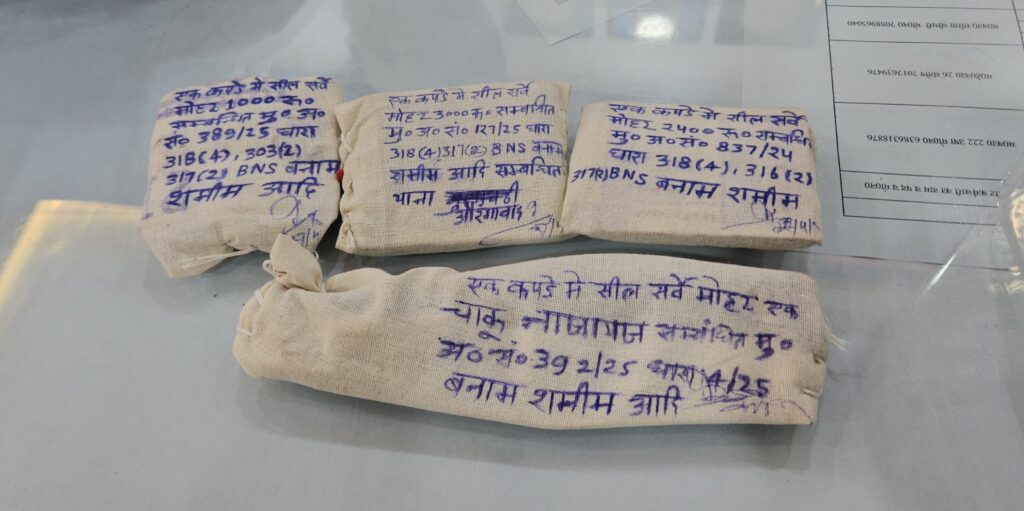 एक कपडे मे सील सर्वे
मोहर 1000 रू०
सम्बन्धित मु० अ०
सं० 389/25 धारा
318(4), 303(2)
317(2) BNS बनाम
शमीम आदि
एक कपडे मे सील सर्वे
मोहर 3000 रू० सम्बन्धित
मु० अ० सं० 127/25 धारा
318(4) 317(2) BNS बनाम
शमीम आदि सम्बन्धित
थाना
औरंगाबाद
एक कपडे मे सील सर्वे
मोहर 2400 रू० सम्बन्धित
मु० अ० सं० 837/24
धारा 318(4), 316(2)
317(2) BNS बनाम शमीम
एक कपडे मे सील सर्वे मोहर एक
चाकू नाजायज सम्बंधित मु०
अ० सं० 392/25 धारा 4/25
बनाम शमीम आदि
7088965040
26 7017639476
222 6386318876